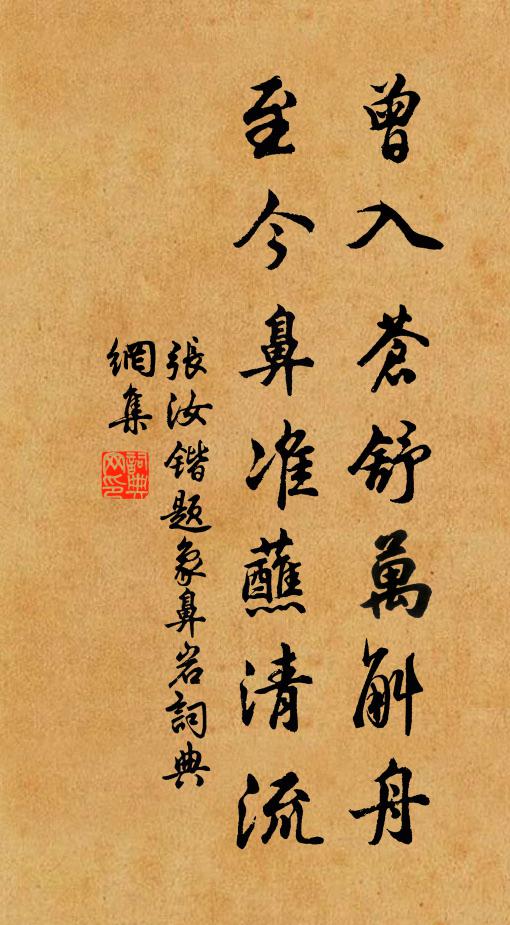 曾入蒼舒萬斛舟
至今鼻准蘸清流
張汝鍇題象鼻岩詞典
網集
詞典網印